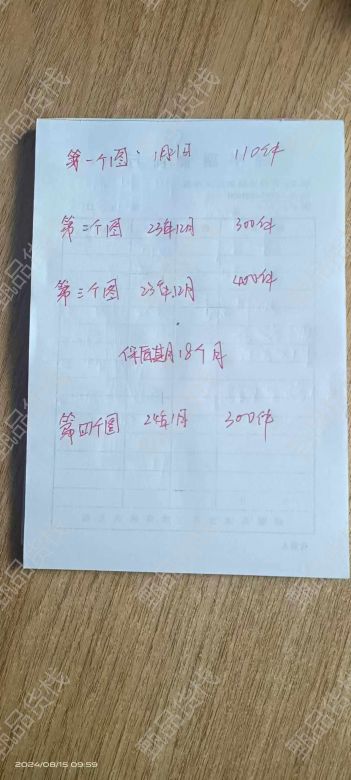 第一个图 1月21日 110件
第二个图 23年12月 300件
第三个图 23年12月 400件
保质期18个月
第四个图 24年1月 300件
2024/08/15 09:59
甄品货栈